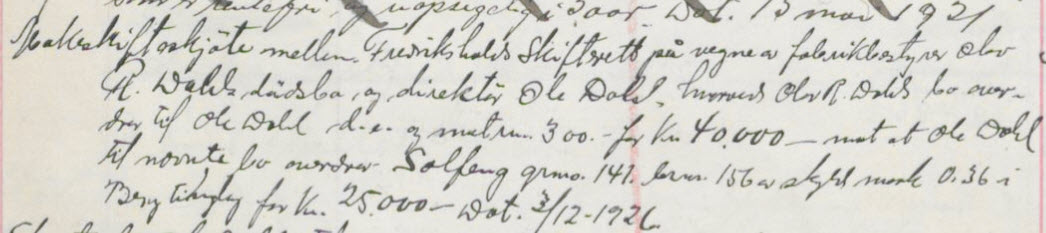 rentefri og uopsigelig i 3 aar. Dat. 13 mai 1921
Makeskifteskjøte mellem Fredrikshalds Skifterett på vegne av fabrikbestyrer Olav
R. Dahls dødsbo, og direktør Ole Dahl, hvorved Olav R. Dahls bo over-
drar til Ole Dahl d.e. og matr.nr. 300.- for Kr. 40.000 — mot at Ole Dahl
til nevnte bo overdrar Solfeng grno. 141 brnr. 156 av skyld mark 0.36 i
Berg tinglag for Kr. 25.000 — Dat. 3/12-1926